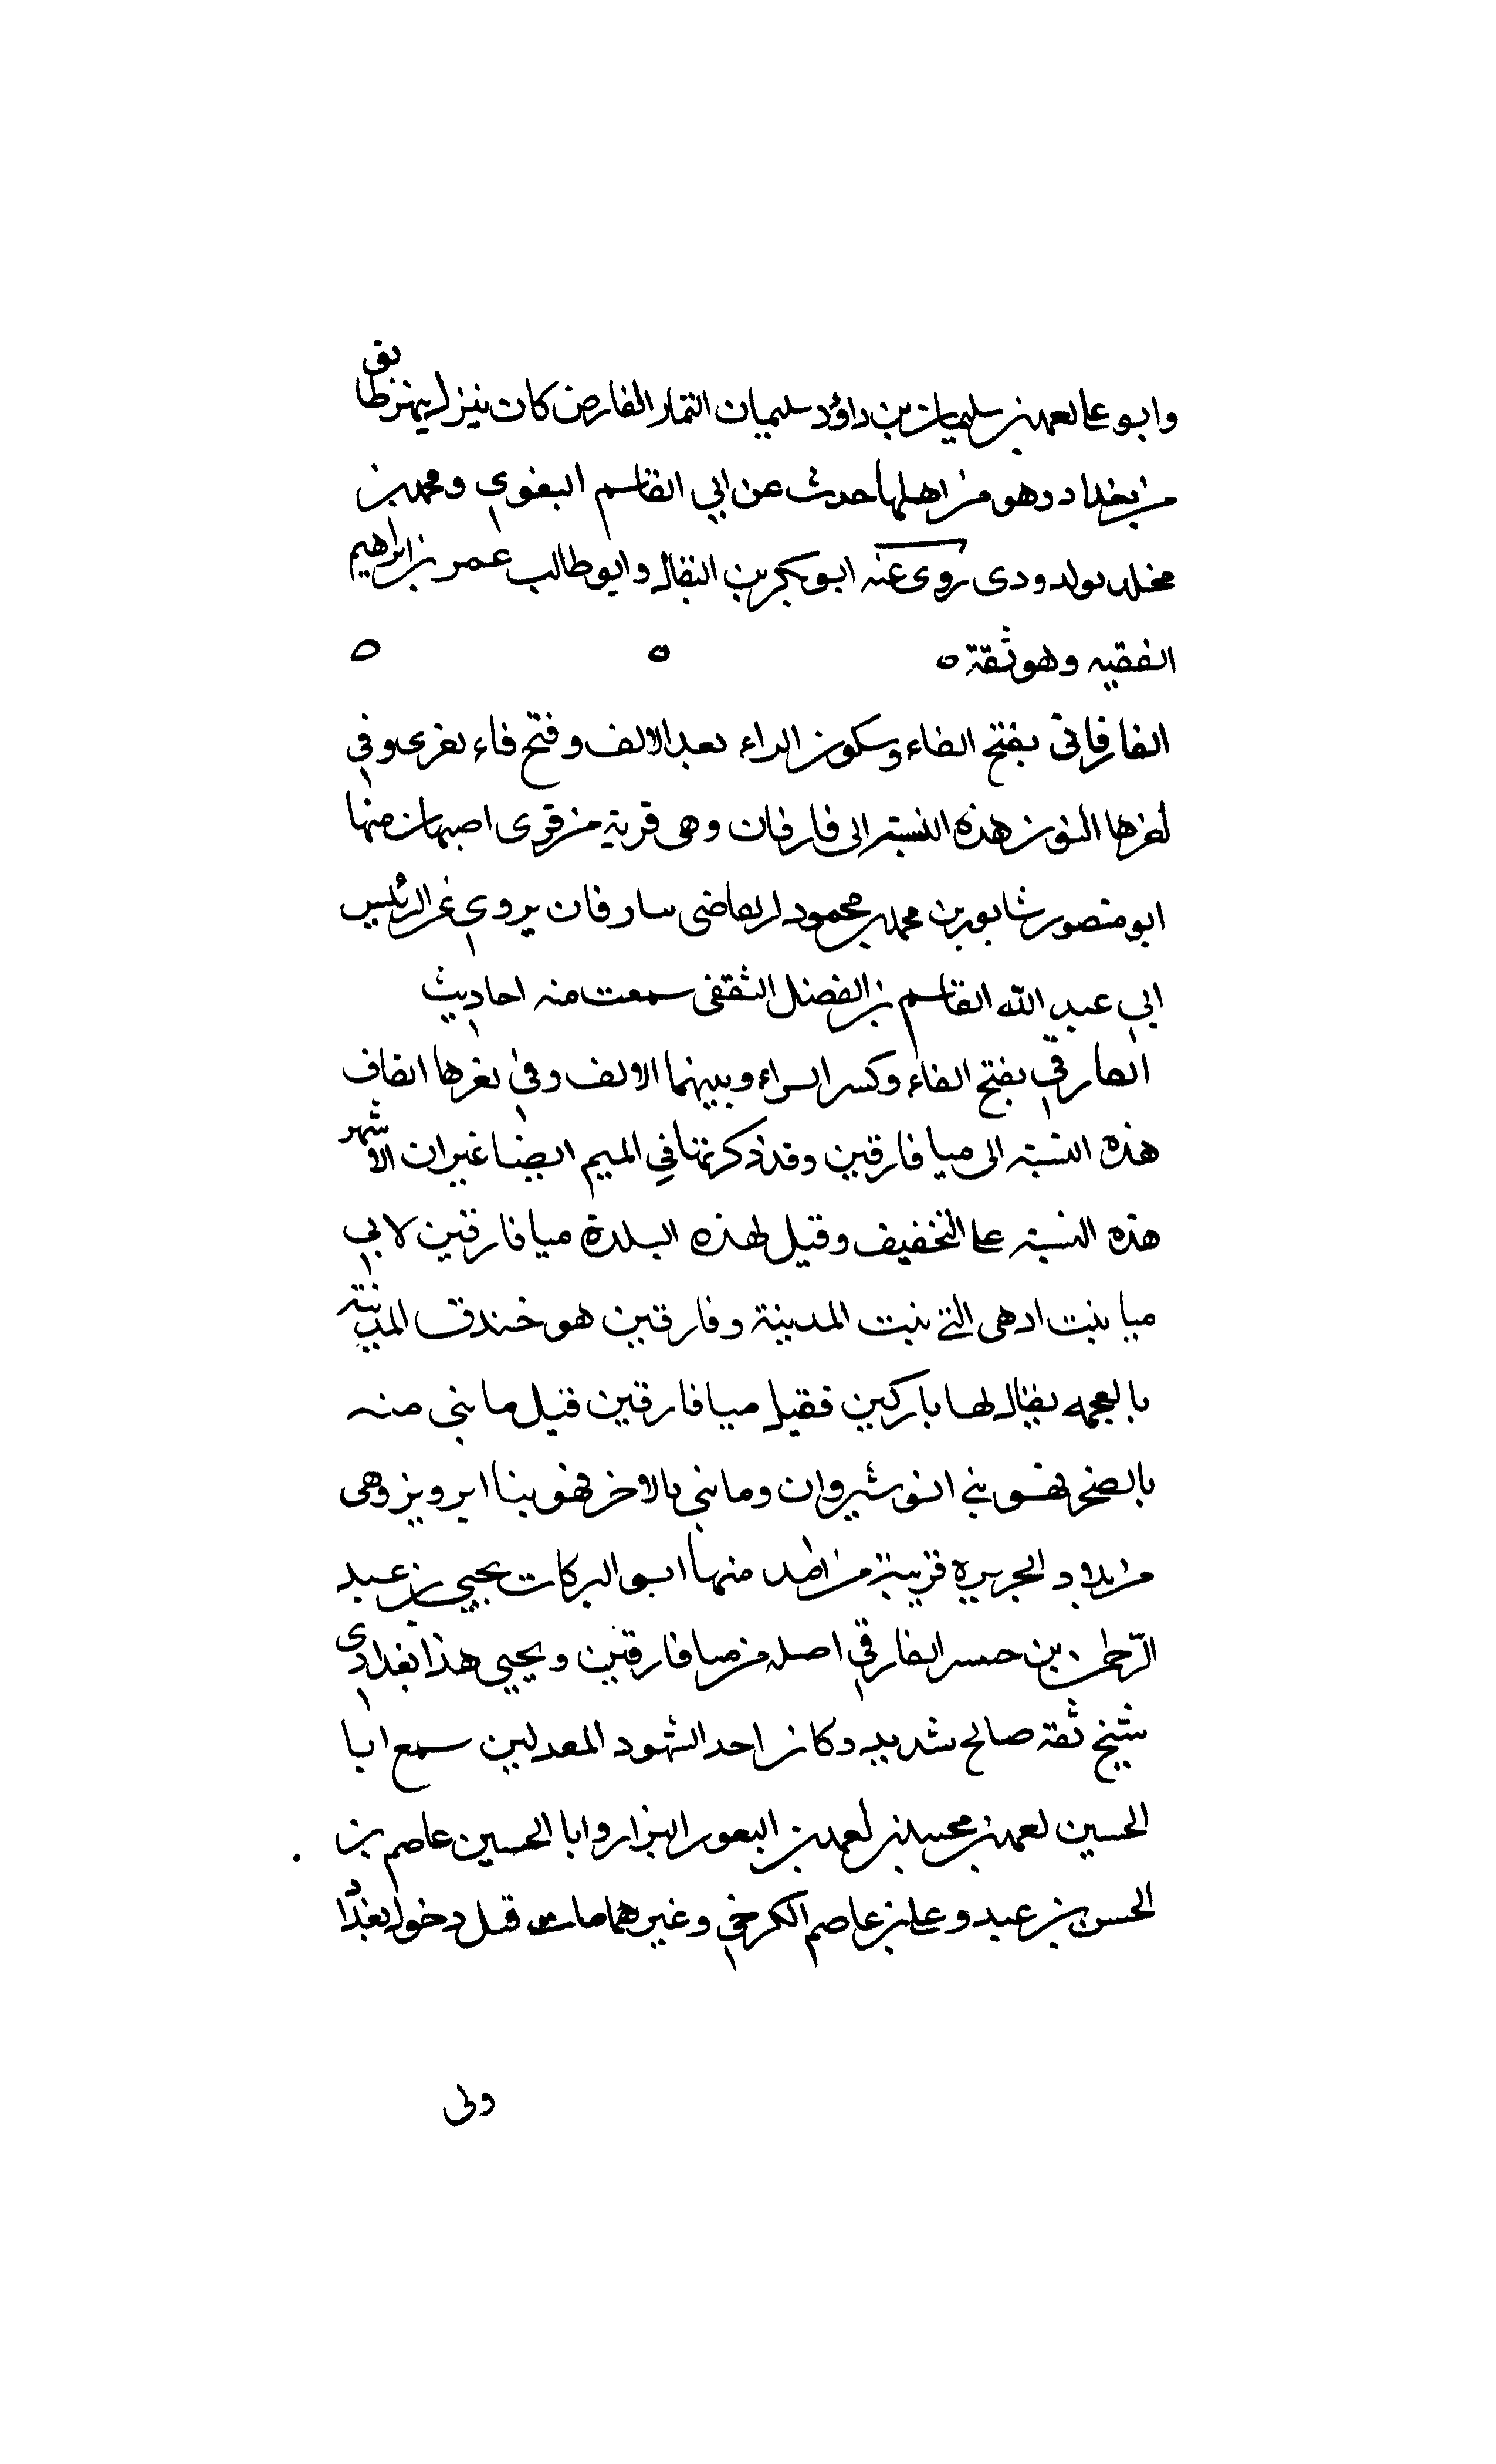 وابو على احمد بن سليمان بن داؤد سليمان التمار الفارض كان ينزل بنهر طابق
من بغداد وهو من اهلها حدث عن ابي القاسم البغوي ومحمد بن
مخلد روى عنه ابو بكر بن البقال وابو طالب عمر بن ابراهيم
الفقيه وهو ثقة ه ه ه
الفارفانى بفتح الفاء وسكون الراء بعد الالف وفتح فاء اخرى وفي
اخرها النون هذه النسبة الى فارفان وهى قرية من قرى اصبهان منها
ابو منصور شابور بن محمد بن محمود القاضى فارفان يروي عن الرئيس
ابي عبد الله القاسم بن الفضل الثقفى سمعت منه احاديث
الفارقي بفتح الفاء وكسر الراء وبينهما الالف وفي اخرها القاف
هذه النسبة الى ميا فارقين وقد ذكرتها في الميم ايضا غير ان الاشهر
هذه النسبة على التخفيف وقيل لهذه البلدة ميا فارقين لابي
ميا بنت ادهى التى بنت المدينة وفارقين هو خندق المدينة
بالعجمه يقال لها باركين فقيل ميا فارقين قيل ما بنى منه
بالصخر فهو بنى انوشيروان وما بنى بالاخر فهو بنا ابرويز وهى
من بلاد الجزيرة قريبة من امد منها ابو البركات يحيي بن عبد
الرحمن بن حسن الفارقي اصله من ميا فارقين ويحيي هذا بغدادي
شيخ ثقة صالح سديد وكان احد الشهود المعدلين سمع ابا
الحسين احمد بن محمد بن احمد بن النقور البزار وابا الحسين عاصم بن
الحسن بن عبد وعلى بن عاصم الكرخي وغيرهما مات قبل دخول بغداد
ولى